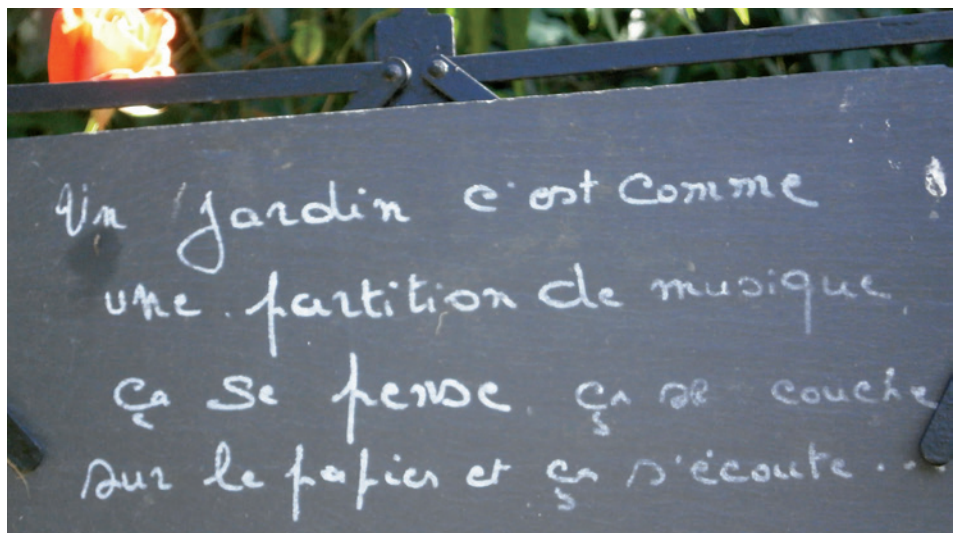 Un jardin c'est comme
une partition de musique,
ça se pense, ça se couche
sur le papier et ça s'écoute...